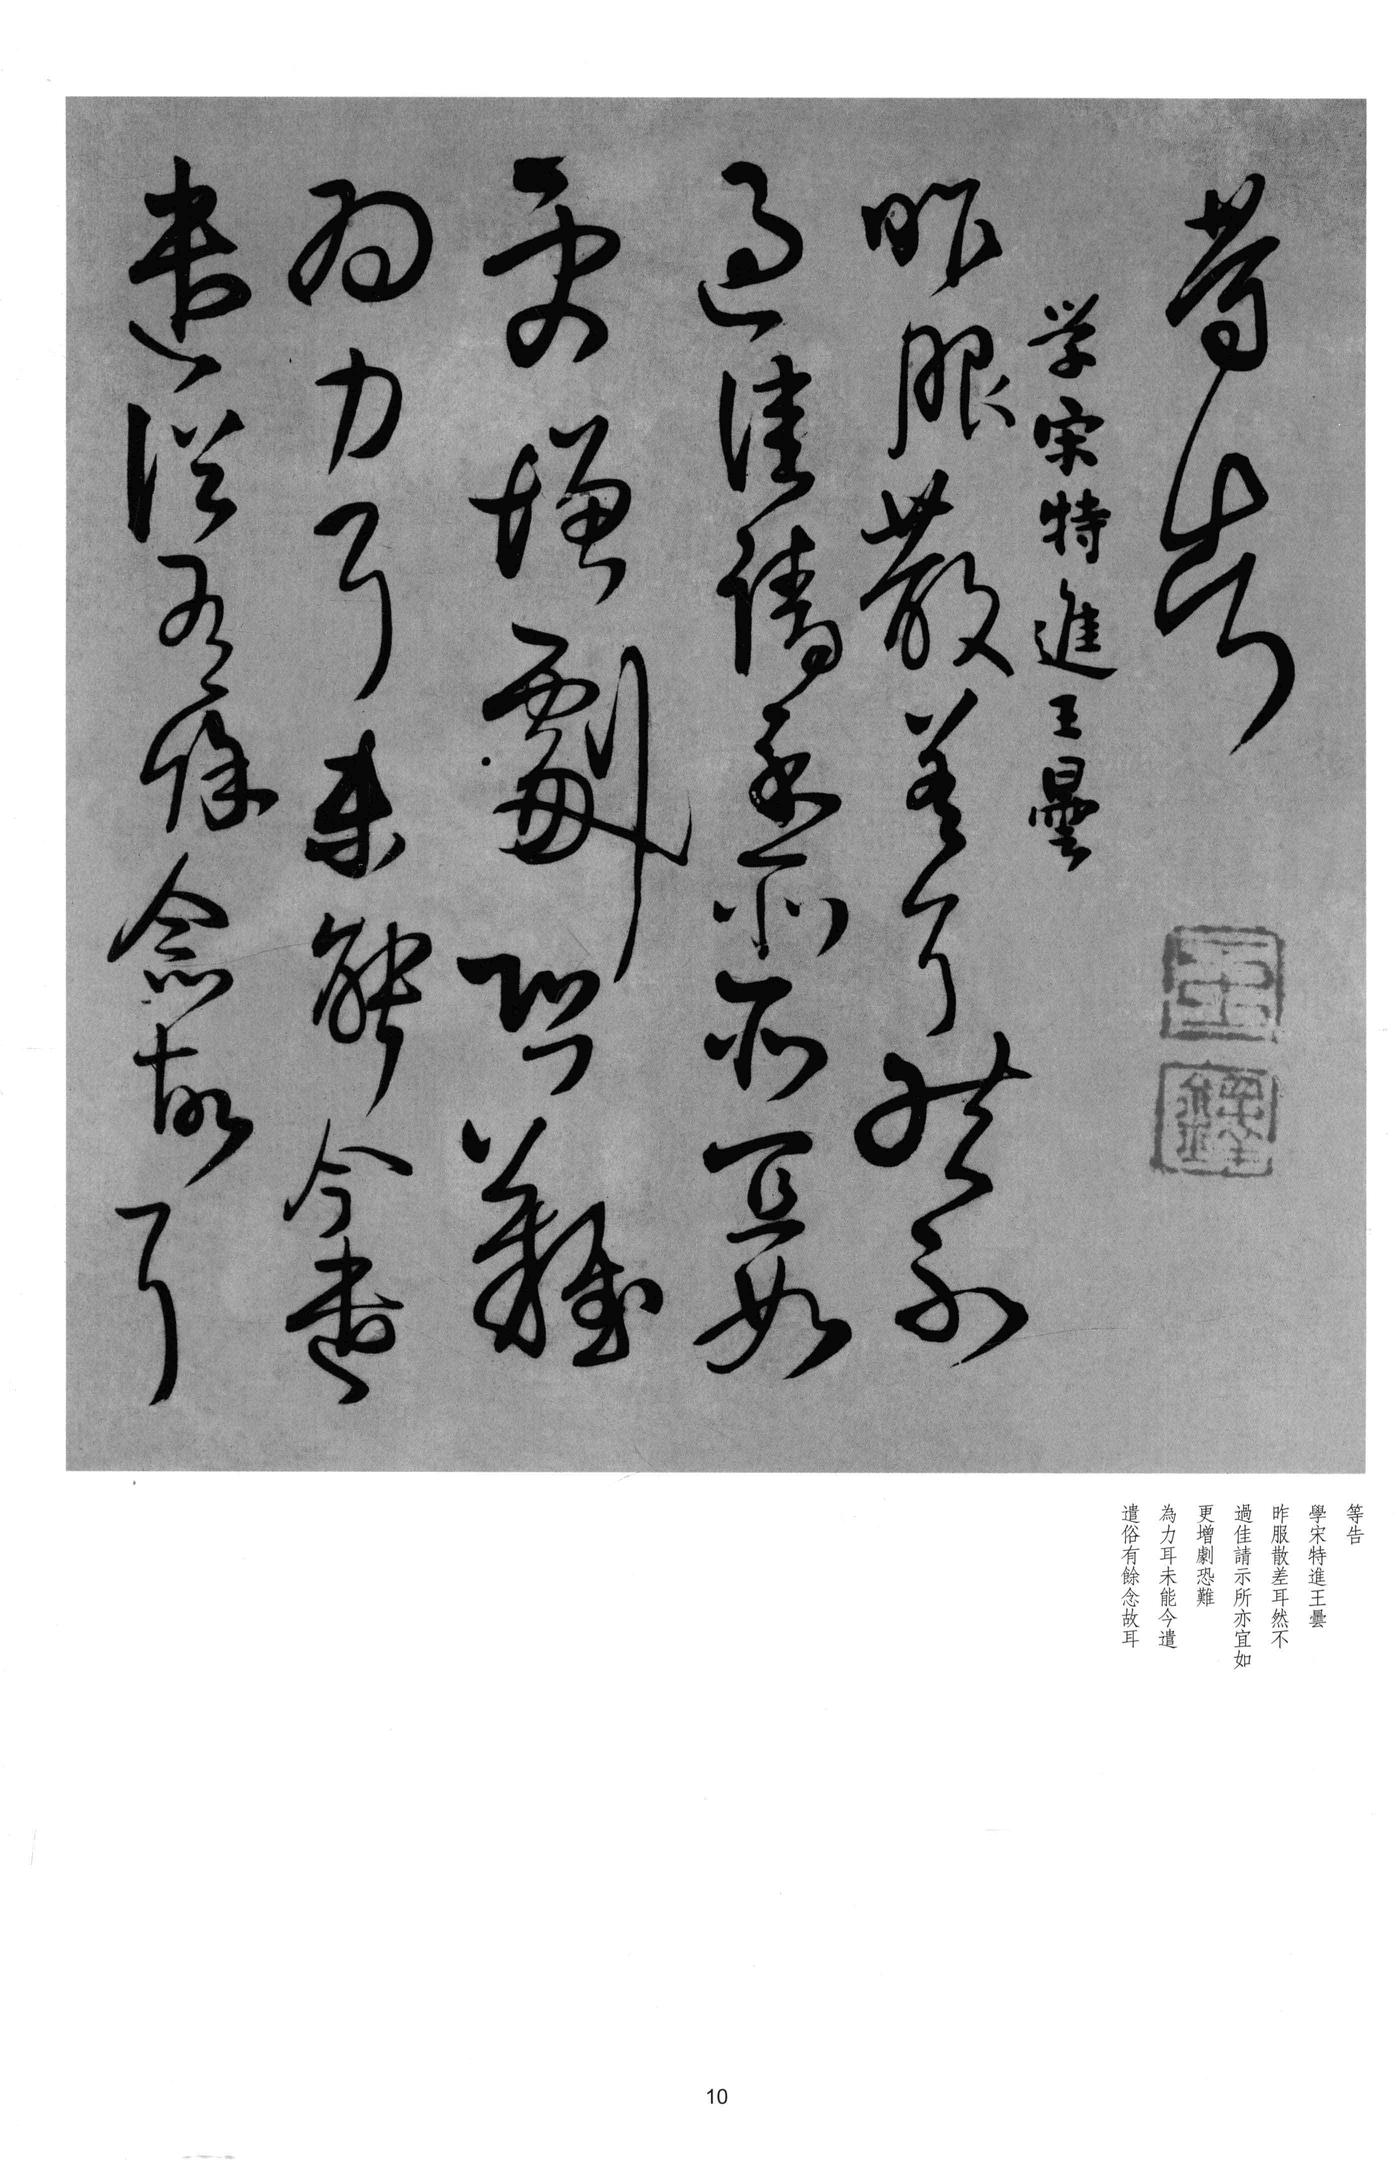 等告
学宋特進王曇
昨服散差耳然不
過佳請示所亦宜如
更增劇恐難
為力耳未能今遣
遣俗有餘念故耳
王
等告
學宋特進王曇
昨服散差耳然不
過佳請示所亦宜如
更增劇恐難
為力耳未能今遣
遣俗有餘念故耳
10